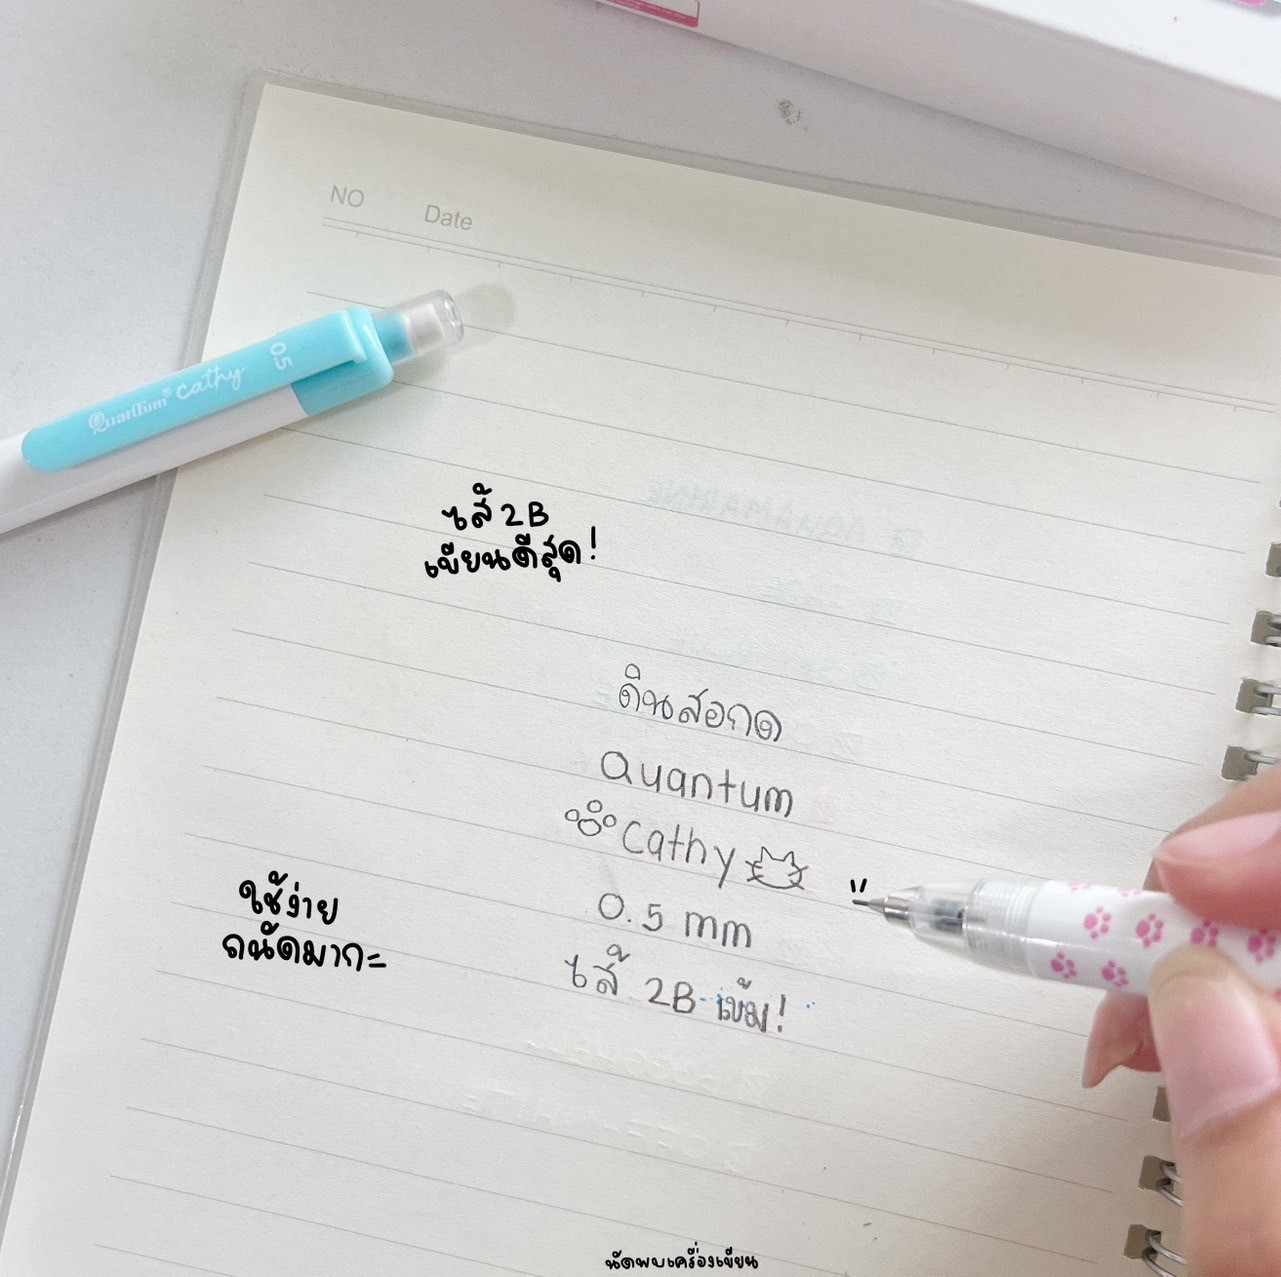 NO Date
Quantum® Cathy 0.5
ไส้ 2B
เขียนดีสุด!
ดินสอกด
Quantum
Cathy
0.5 mm
ไส้ 2B เข้ม!
ใช้ง่าย
ถนัดมากะ
นัดพบเครื่องเขียน